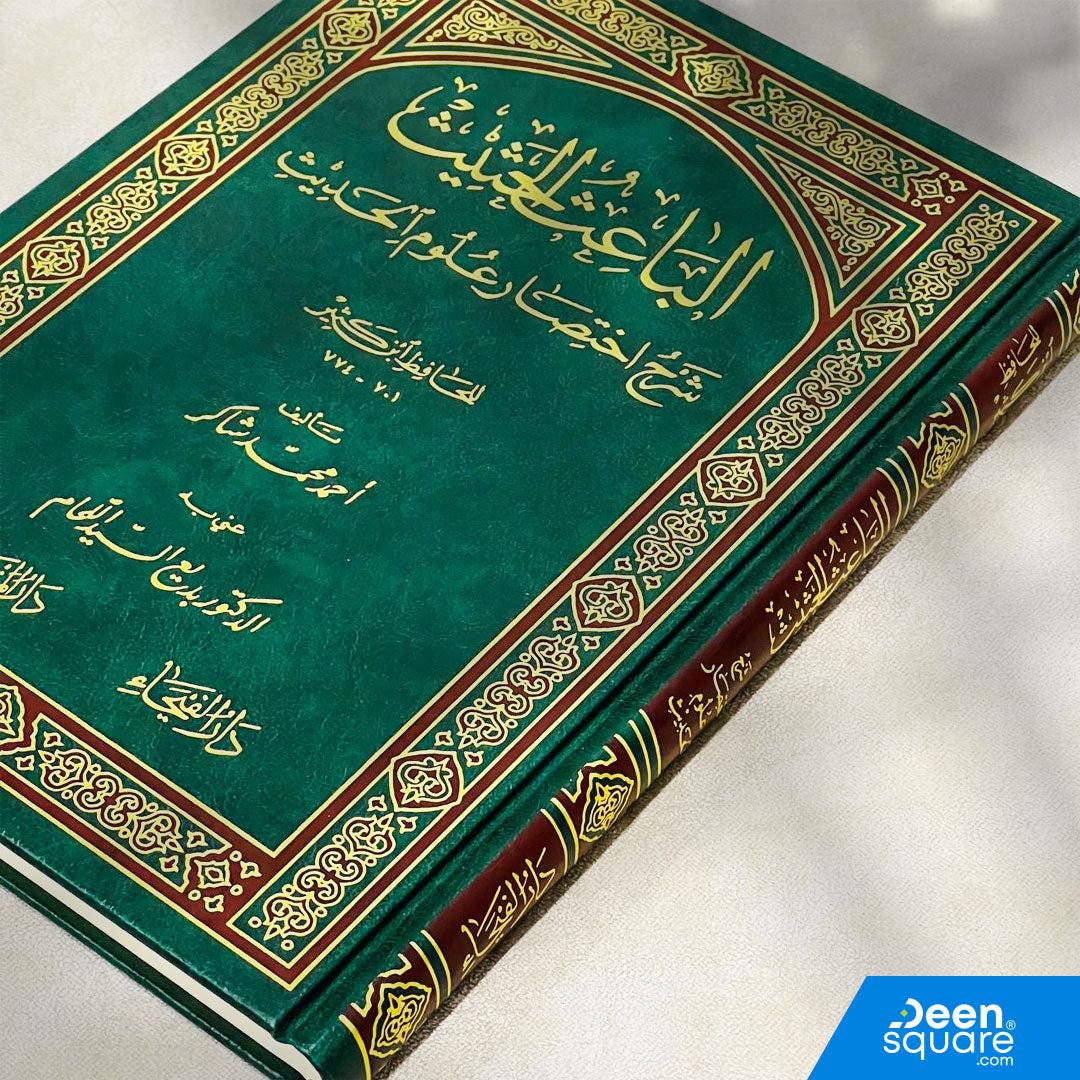 الباعث الحثيث
شرح اختصار علوم الحديث
للحافظ ابن كثير
٧٠١ - ٧٧٤
تأليف
أحمد محمد شاكر
عني به
الدكتور بديع السيد اللحام
دار الفيحاء
دار
للحافظ
الباعث الحثيث
دار الفيحاء
Deen
square
.com